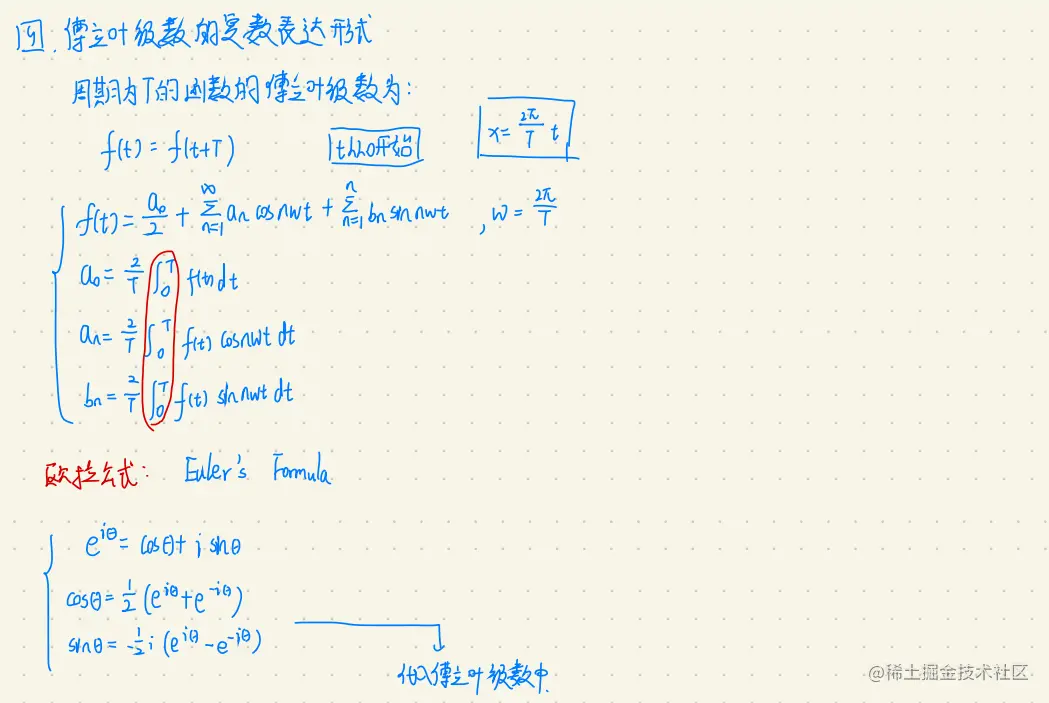 四. 傅立叶级数的复数表达形式
周期为T的函数的傅立叶级数为:
f(t) = f(t+T) t从0开始 x = \frac{2π}{T} t
f(t) = \frac{a_0}{2} + \sum_{n=1}^{∞} a_n cos nwt + \sum_{n=1}^{n} b_n sin nwt , w = \frac{2π}{T}
a_0 = \frac{2}{T} \int_0^T f(t) dt
a_n = \frac{2}{T} \int_0^T f(t) cos nwt dt
b_n = \frac{2}{T} \int_0^T f(t) sin nwt dt
欧拉公式: Euler's Formula
e^{iθ} = cosθ + i sinθ
cosθ = \frac{1}{2} (e^{iθ} + e^{-iθ})
sinθ = -\frac{1}{2} i (e^{iθ} - e^{-iθ})
代入傅立叶级数中
@稀土掘金技术社区